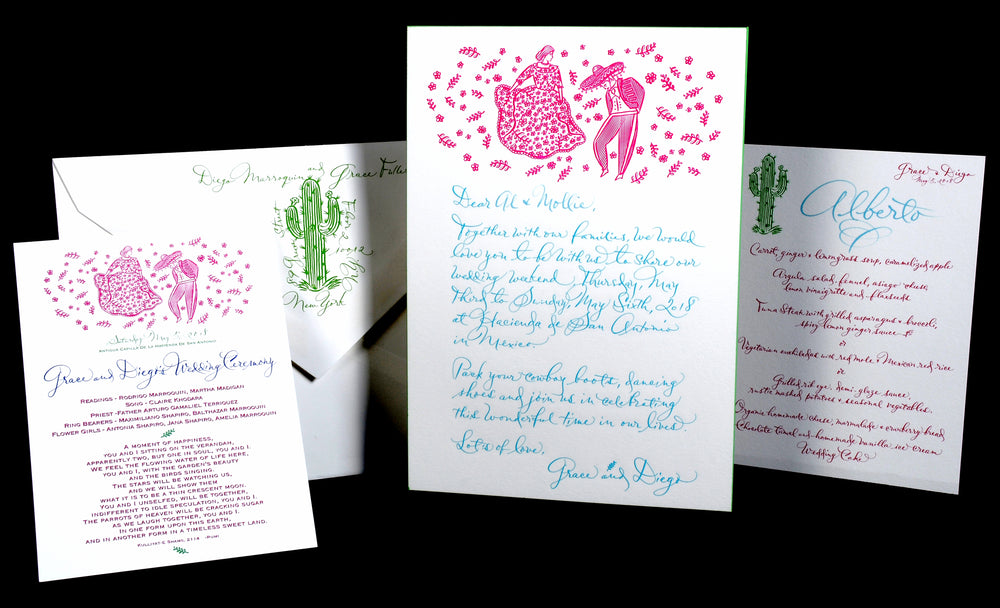 Diego Marroquin and Grace Fuller
New York
Saturday May 5, 2018
Antigua Capilla de la Hacienda de San Antonio
Grace and Diego's Wedding Ceremony
Readings - Rodrigo Marroquin, Martha Madigan
Song - Claire Khodara
Priest - Father Arturo Gamaliel Terriquez
Ring Bearers - Maximiliano Shapiro, Balthazar Marroquin
Flower Girls - Antonia Shapiro, Jana Shapiro, Amelia Marroquin
A moment of happiness,
you and I sitting on the verandah,
apparently two, but one in soul, you and I.
We feel the flowing water of life here,
you and I, with the garden's beauty
and the birds singing.
The stars will be watching us,
and we will show them
what it is to be a thin crescent moon.
You and I unselfed, will be together,
indifferent to idle speculation, you and I.
The parrots of heaven will be cracking sugar
as we laugh together, you and I.
In one form upon this earth,
and in another form in a timeless sweet land.
Kulliyat-e Shams, 2114 -Rumi
Dear Al & Mollie,
Together with our families, we would
love you to be with us to share our
wedding weekend, Thursday, May
Third to Sunday, May Sixth, 2018
at Hacienda de San Antonio
in Mexico
Pack your cowboy boots, dancing
shoes and join us in celebrating
this wonderful time in our lives
Lots of love,
Grace and Diego
Grace & Diego
May 5, 2018
Alberto
Carrot, ginger & lemongrass soup, caramelized apple
Arugula salad, fennel, asiago cheese,
lemon vinaigrette and flaxseeds
Tuna Steak with grilled asparagus & broccoli,
spicy lemon ginger sauce
or
Vegetarian enchiladas with red mole & Mexican red rice
or
Grilled rib eye, demi-glaze sauce,
rustic mashed potatoes & seasonal vegetables.
Organic homemade cheese, marmalade & cranberry bread
Chocolate tamal and homemade vanilla ice cream
Wedding Cake